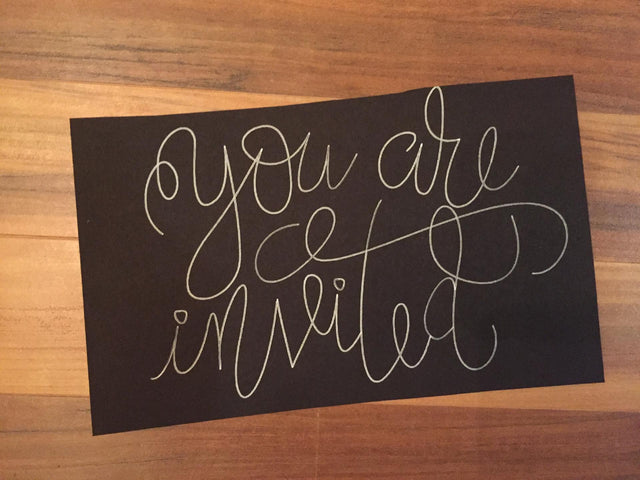 you are
invited